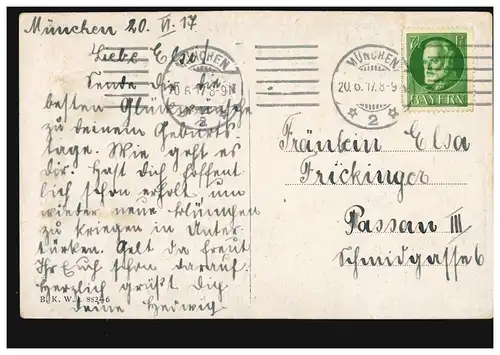 München 20. VI. 17
Liebe Elsa!
Sende Dir die
besten Glückwünsche
zu deinem Geburts
tage. Wie geht es
dir. Hast Dich hoffent
lich schon erholt um
wieder neue
zu kriegen in Unter
türken. Gelt da freut
Ihr Euch schon darauf.
Herzlich grüßt Dich
deine Hedwig
B. K. W. I.
MÜNCHEN
20.6.17.8-9N
2
MÜNCHEN
20.6.17.8-9
2
7½
BAYERN
Fräulein Elsa
Frickinger
Passau III
Schmidgasse 6